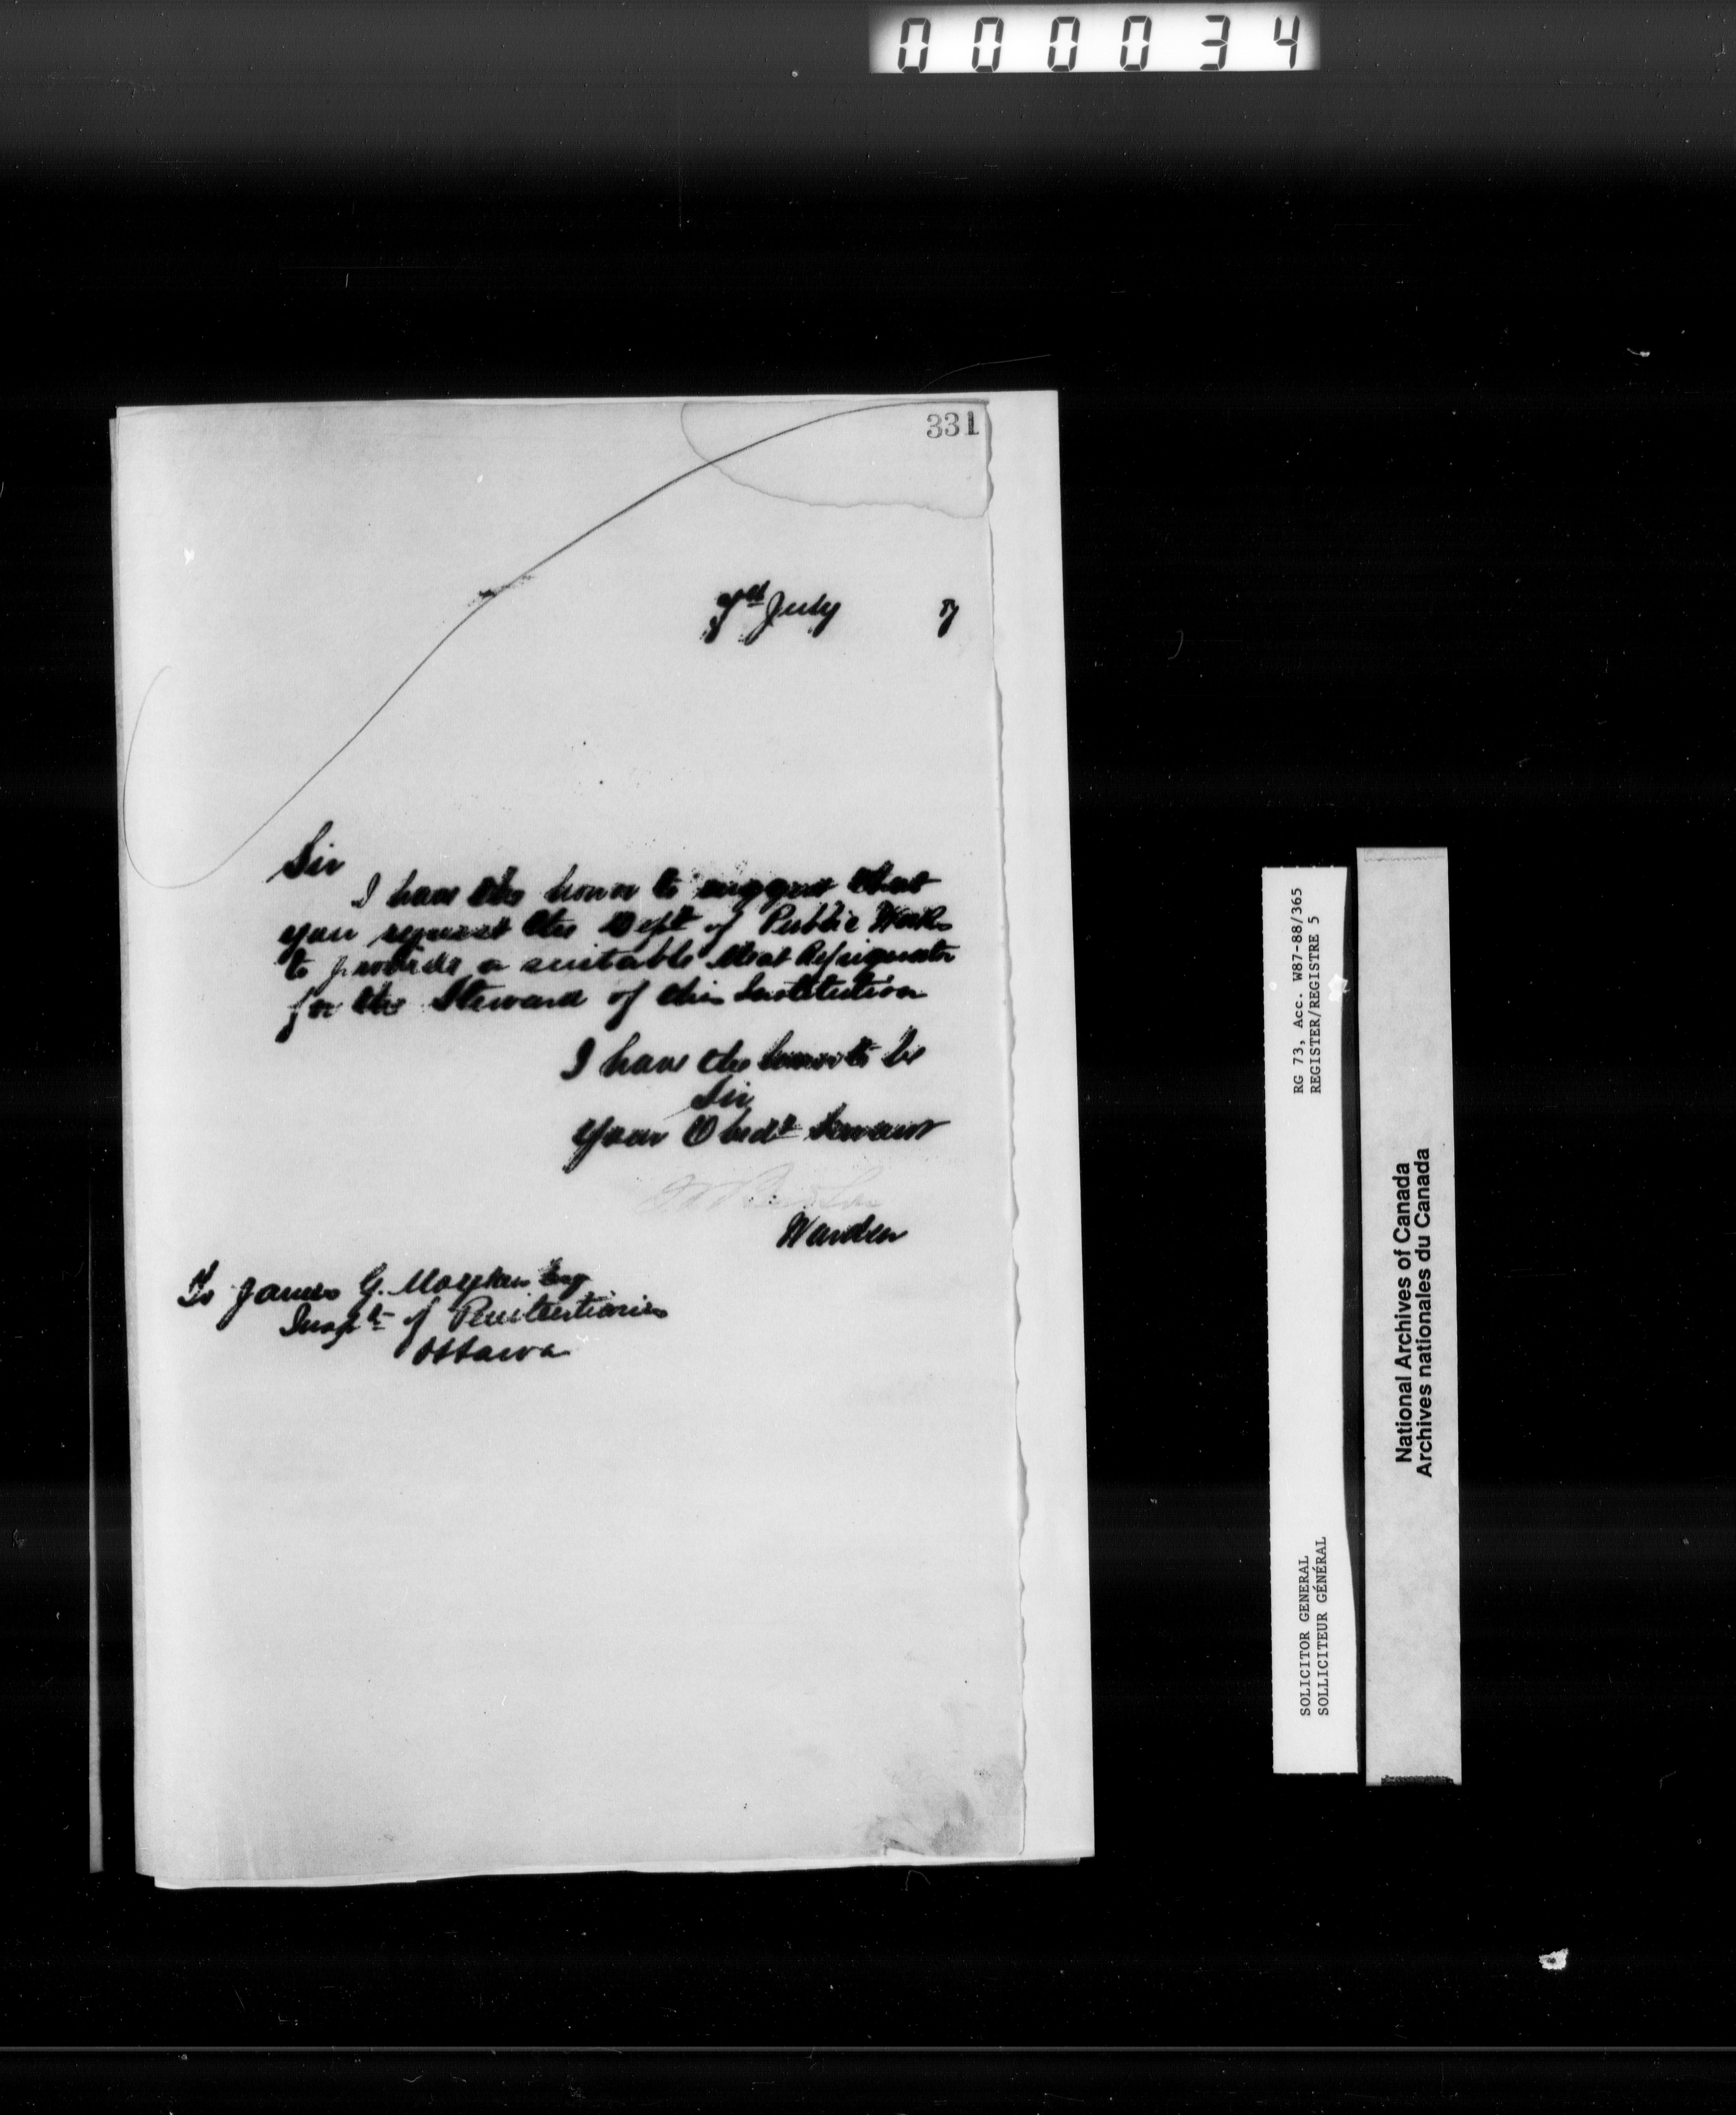 000034
331
July 7
Sir
I have the honor to suggest that
you request the Dept of Public Works
to provide a suitable Meat Refrigerator
for the Steward of this Institution
I have the honor to be
Sir
Your Obedt Servant
Warden
To James G. Moylan Esq
Inspr of Penitentiaries
Ottawa
RG 73, Acc. W87-88/365
REGISTER/REGISTRE 5
SOLICITOR GENERAL
SOLLICITEUR GÉNÉRAL
National Archives of Canada
Archives nationales du Canada